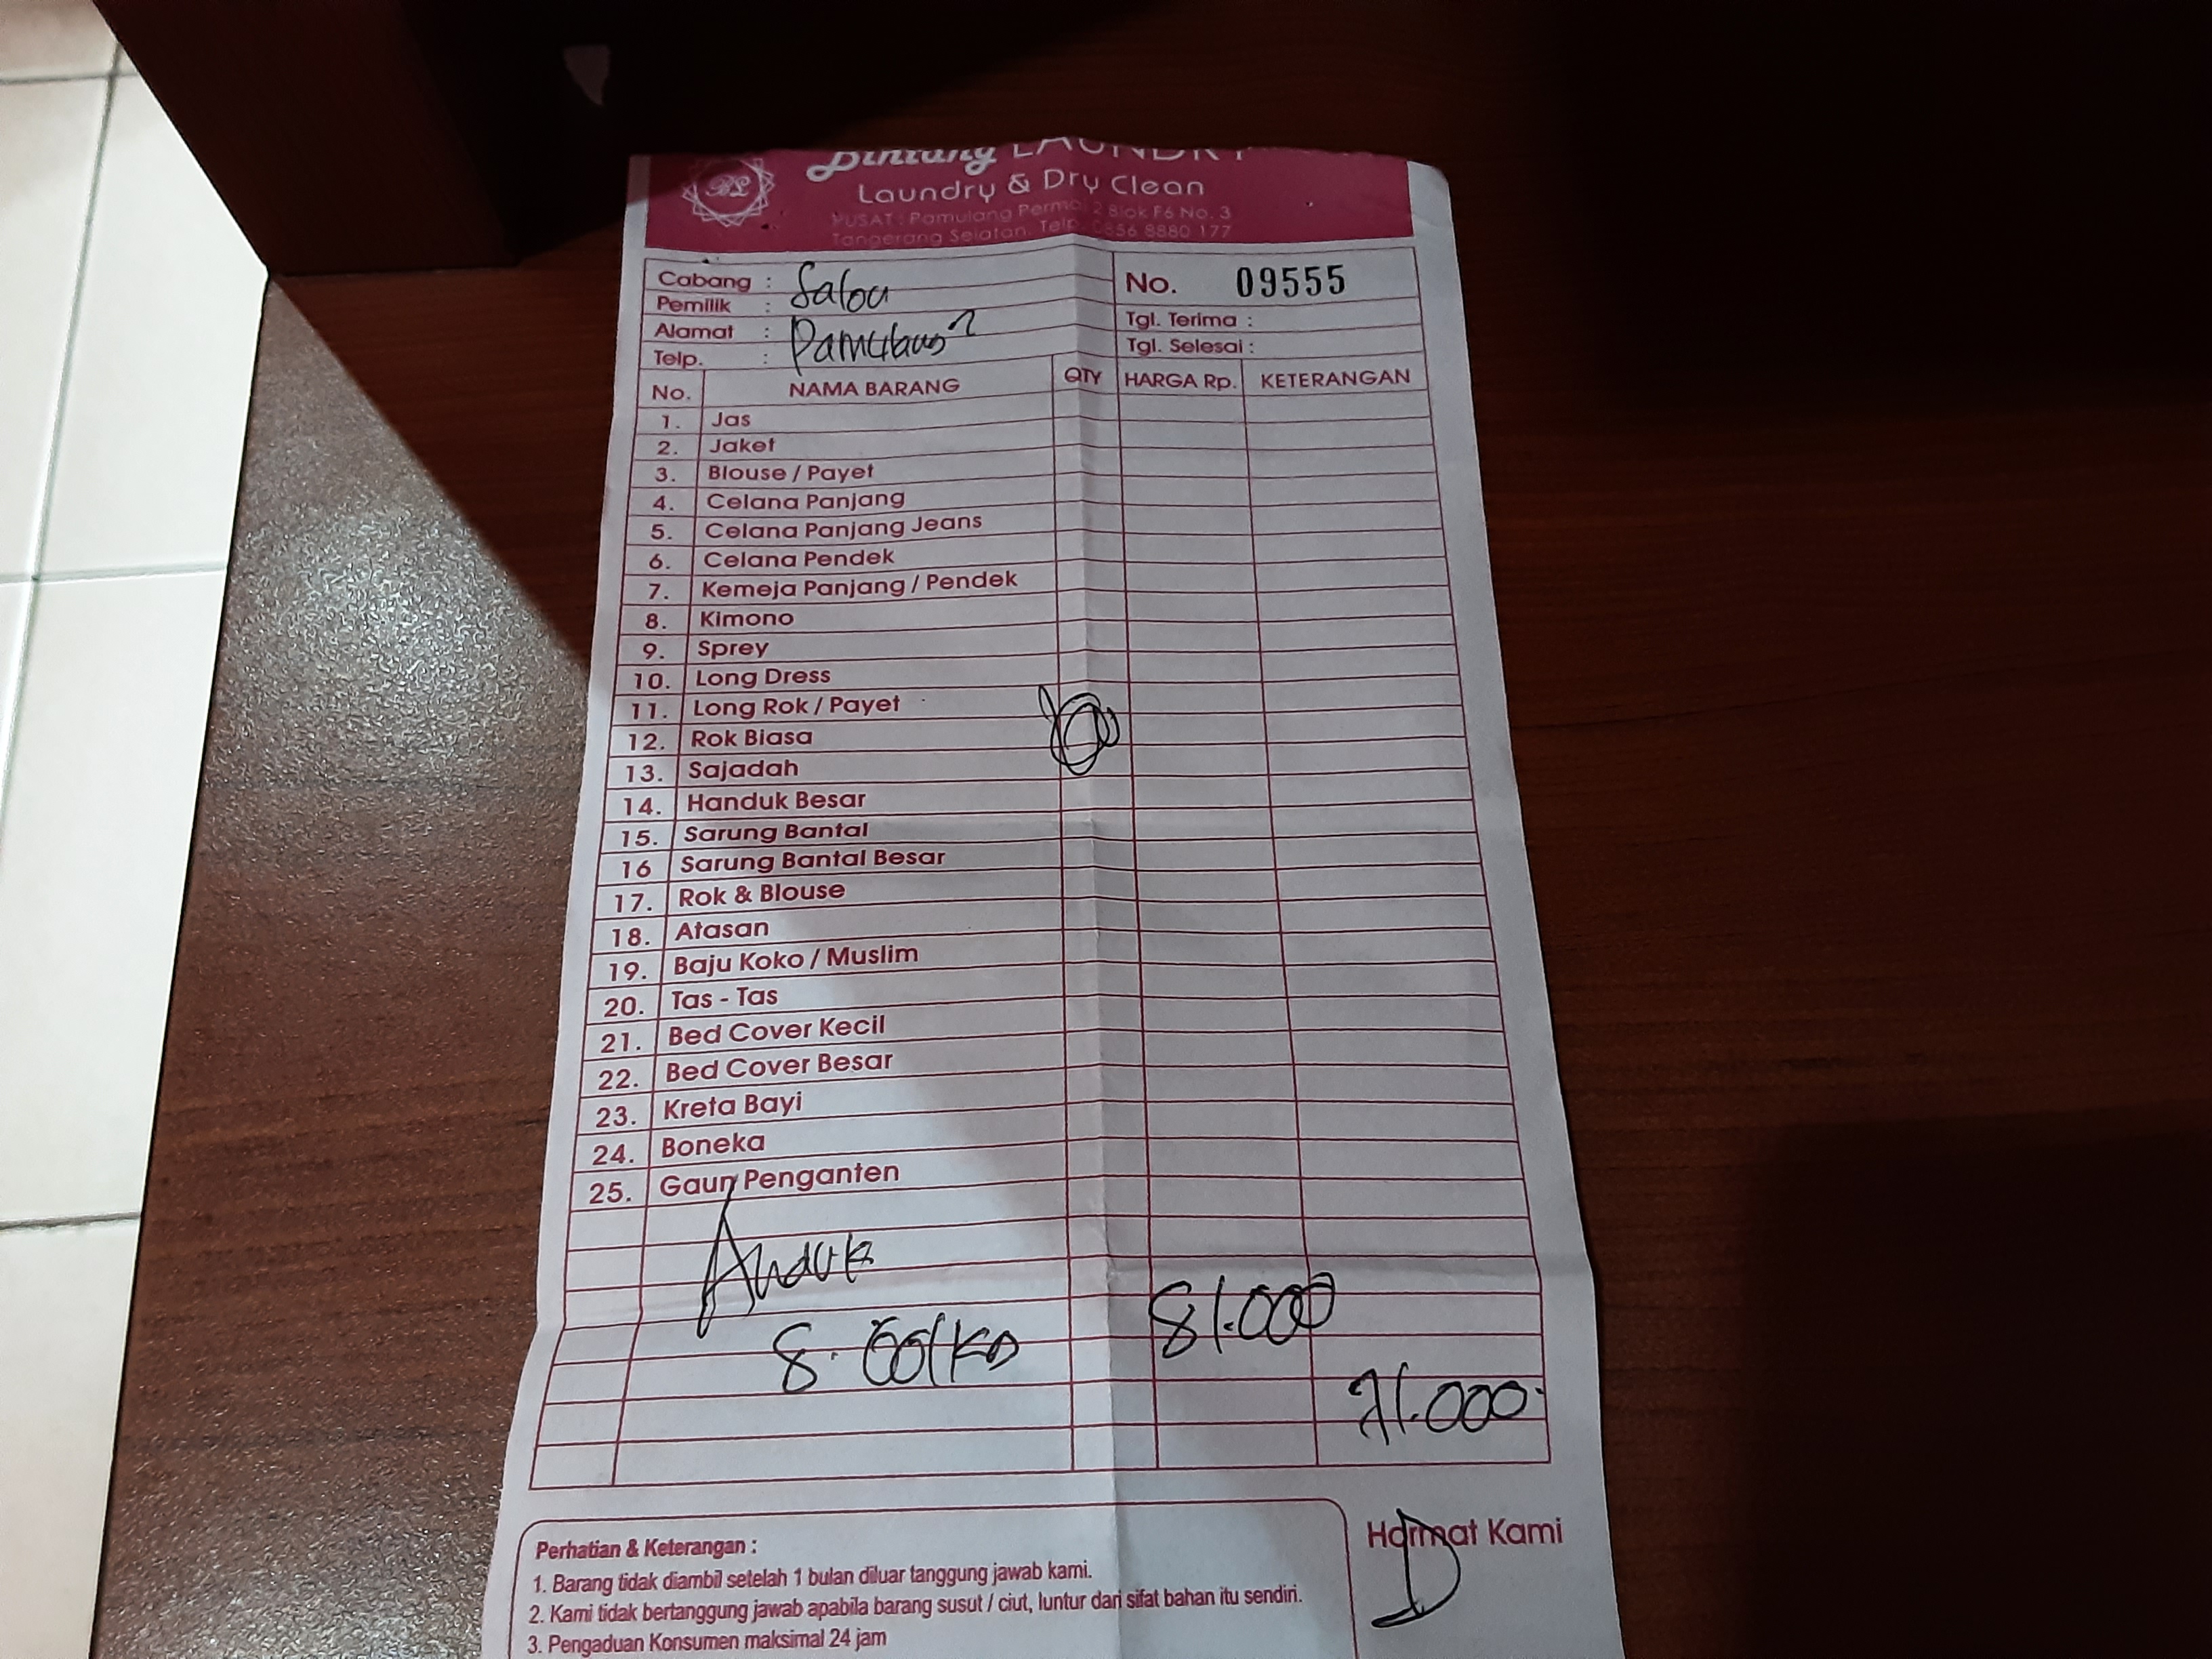 Bintang LAUNDRY
Laundry & Dry Clean
PUSAT : Pamulang Permai 2 Blok F6 No. 3
Tangerang Selatan. Telp. 0856 8880 177
BL
Cabang :
Pemilik : Salon
Alamat :
Telp. :
No. 09555
Tgl. Terima :
Tgl. Selesai :
No. NAMA BARANG QTY HARGA Rp. KETERANGAN
1. Jas
2. Jaket
3. Blouse / Payet
4. Celana Panjang
5. Celana Panjang Jeans
6. Celana Pendek
7. Kemeja Panjang / Pendek
8. Kimono
9. Sprey
10. Long Dress
11. Long Rok / Payet
12. Rok Biasa
13. Sajadah
14. Handuk Besar
15. Sarung Bantal
16 Sarung Bantal Besar
17. Rok & Blouse
18. Atasan
19. Baju Koko / Muslim
20. Tas - Tas
21. Bed Cover Kecil
22. Bed Cover Besar
23. Kreta Bayi
24. Boneka
25. Gaun Penganten
Anduk
81.000
Hormat Kami
Perhatian & Keterangan :
1. Barang tidak diambil setelah 1 bulan diluar tanggung jawab kami.
2. Kami tidak bertanggung jawab apabila barang susut / ciut, luntur dari sifat bahan itu sendiri.
3. Pengaduan Konsumen maksimal 24 jam